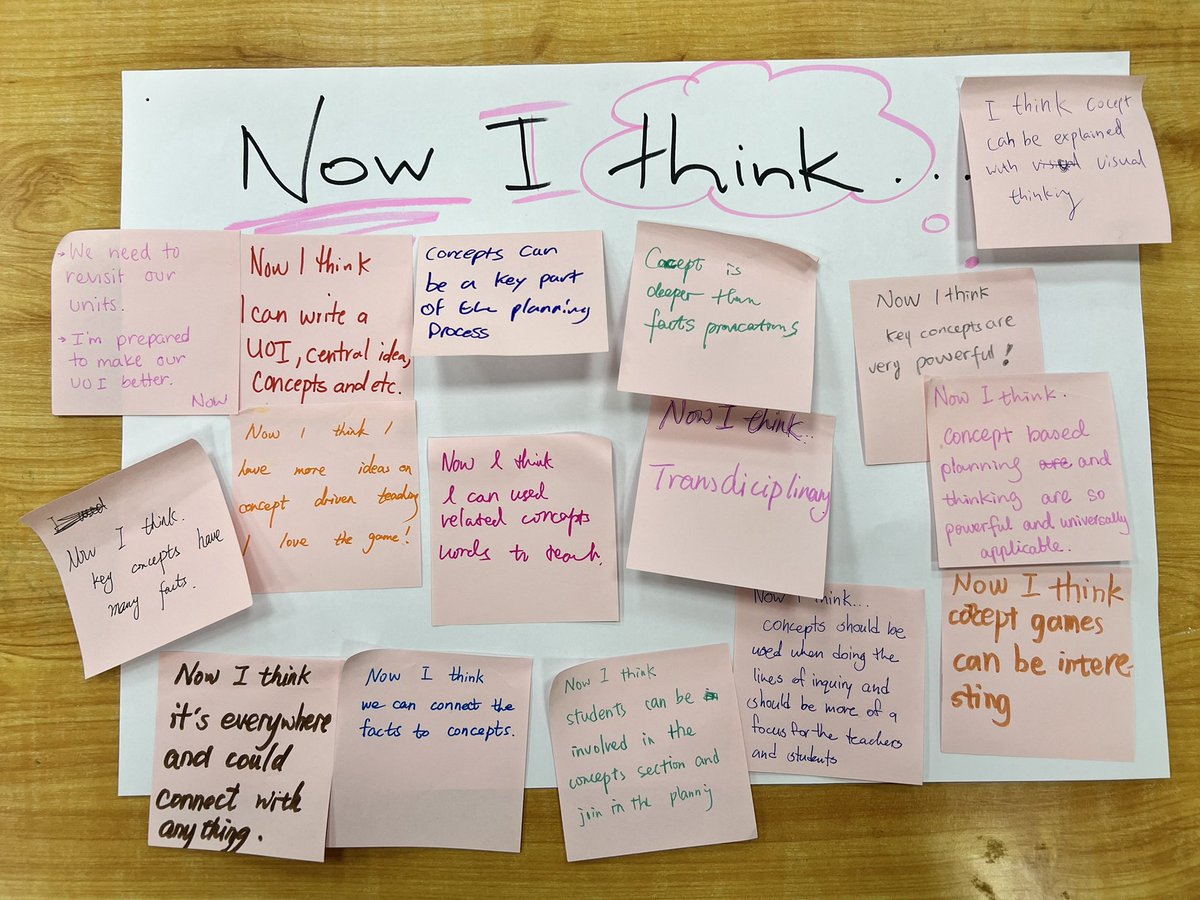 Now I think...
I think cocept
can be explained
with visual
thinking
→ We need to
revisit our
units.
→ I'm prepared
to make our
UOI better.
Now
Now I think
I can write a
UOI, central idea,
Concepts and etc.
Concepts can
be a key part
of the planning
Process
Cocept is
deeper than
facts
Now I think
key concepts are
very powerful!
Now I think.
concept based
planning and
thinking are so
powerful and universally
applicable.
Now I think.
key concepts have
many facts.
Now I think I
have more ideas on
concept driven teaching
I love the game!
Now I think
I can used
related concepts
words to teach.
Now I think..
Transdiciplinary
Now I think...
concepts should be
used when doing the
lines of inquiry and
should be more of a
focus for the teachers
and students
Now I think
cocept games
can be intere-
sting
Now I think
it's everywhere
and could
connect with
anything.
Now I think
we can connect the
facts to concepts.
Now I think
students can be
involved in the
concepts section and
join in the planning